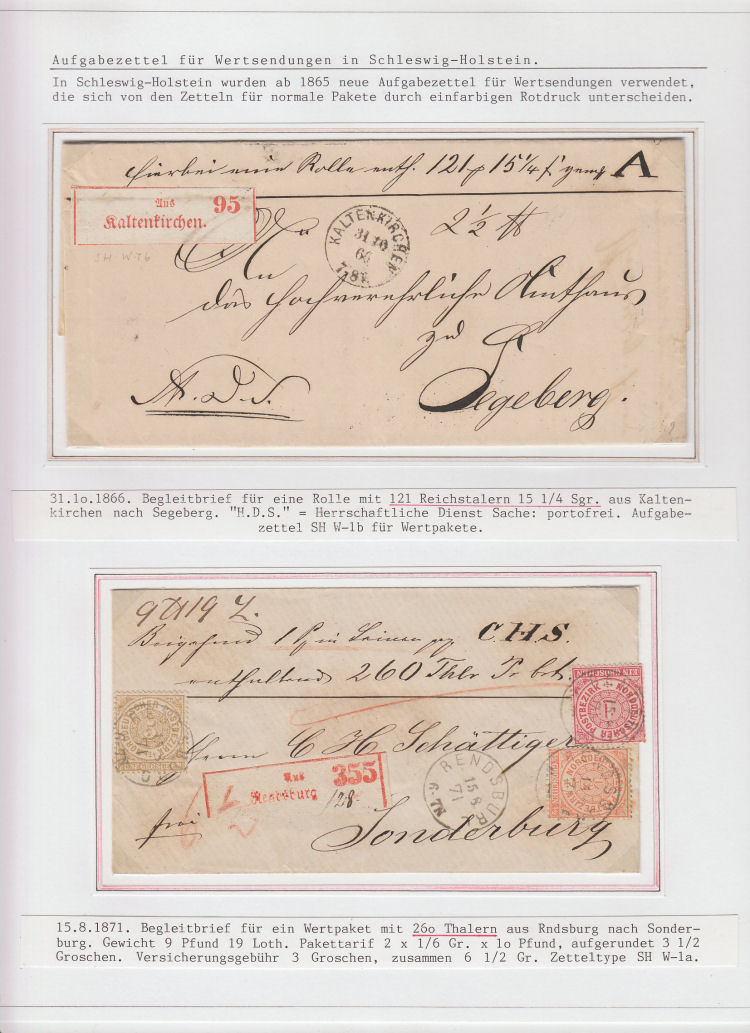 Aufgabezettel für Wertsendungen in Schleswig-Holstein.
In Schleswig-Holstein wurden ab 1865 neue Aufgabezettel für Wertsendungen verwendet,
die sich von den Zetteln für normale Pakete durch einfarbigen Rotdruck unterscheiden.
hierbei eine Rolle enth. 121 15 1/4 A
Aus 95
Kaltenkirchen.
SH W-1b
KALTENKIRCHEN
31 10
66
7-8V.
2 1/2 ℔
An
das hochverehrliche Amthaus
zu
Segeberg.
H. D. S.
31.1o.1866. Begleitbrief für eine Rolle mit 121 Reichstalern 15 1/4 Sgr. aus Kalten-
kirchen nach Segeberg. "H.D.S." = Herrschaftliche Dienst Sache: portofrei. Aufgabe-
zettel SH W-1b für Wertpakete.
9 ℔ 19 L.
Beigehend 1 P in Leinen C.H.S.
enthaltend 260 Thlr Pr
NORDDEUTSCHER POSTBEZIRK
NORDDEUTSCHER POSTBEZIRK
1
Herrn C H Schättiger
Aus 355
Rendsburg
128
RENDSBURG
15 8
71
frei
Sonderburg
15.8.1871. Begleitbrief für ein Wertpaket mit 26o Thalern aus Rndsburg nach Sonder-
burg. Gewicht 9 Pfund 19 Loth. Pakettarif 2 x 1/6 Gr. x 1o Pfund, aufgerundet 3 1/2
Groschen. Versicherungsgebühr 3 Groschen, zusammen 6 1/2 Gr. Zetteltype SH W-1a.